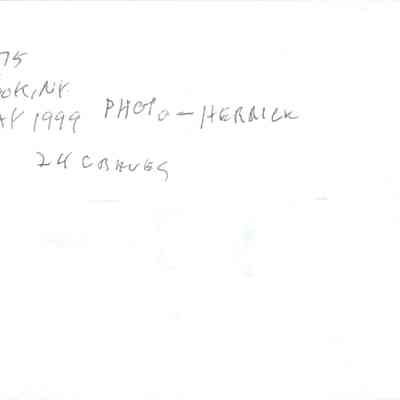 75
OOK, NY
AY 1999 PHOTO - HERRICK
24 GRAVES